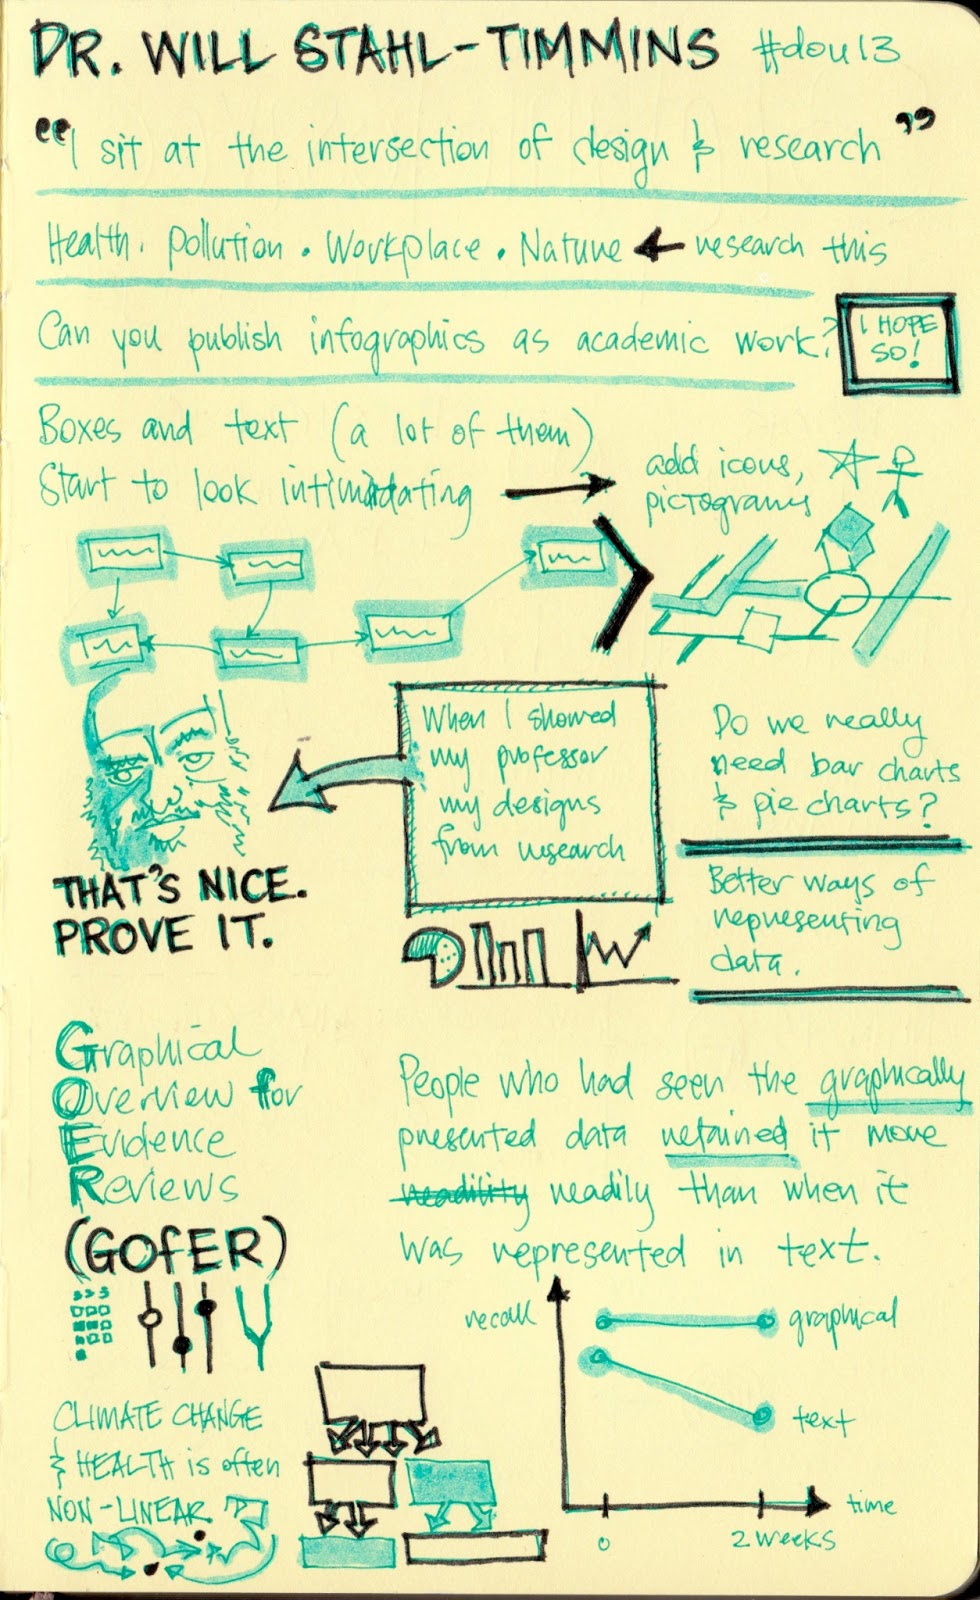 DR. WILL STAHL-TIMMINS #dou13
"I sit at the intersection of design & research"
Health. Pollution. Workplace. Nature ← research this
Can you publish infographics as academic work?
I HOPE
SO!
Boxes and text (a lot of them)
Start to look intimidating →
add icons,
pictograms
When I showed
my professor
my designs
from research
THAT'S NICE.
PROVE IT.
Do we really
need bar charts
& pie charts?
Better ways of
representing
data.
Graphical
Overview for
Evidence
Reviews
(GOfER)
People who had seen the graphically
presented data retained it more
readility readily than when it
was represented in text.
recall
graphical
text
time
0
2 weeks
CLIMATE CHANGE
& HEALTH is often
NON-LINEAR.